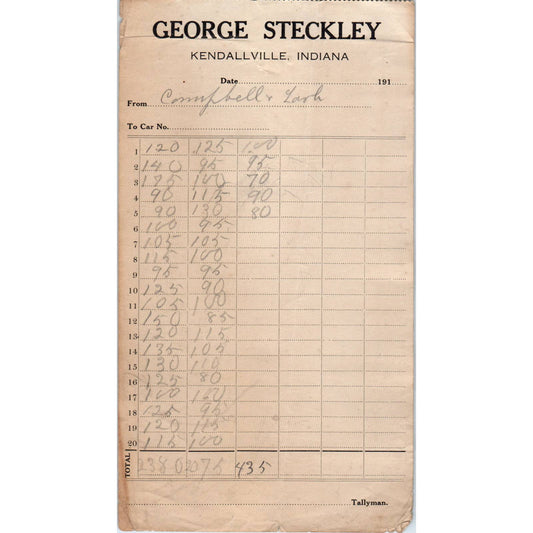 GEORGE STECKLEY
KENDALLVILLE, INDIANA
Date 191
From Campbell & Lash
To Car No.
1 120 125 100
2 140 95 95
3 175 100 70
4 90 115 90
5 90 130 80
6 100 95
7 105 105
8 115 100
9 95 95
10 125 90
11 105 100
12 150 85
13 120 115
14 135 105
15 130 110
16 125 80
17 100 100
18 125 95
19 120 115
20 115 100
TOTAL 2380 2075 435
Tallyman.